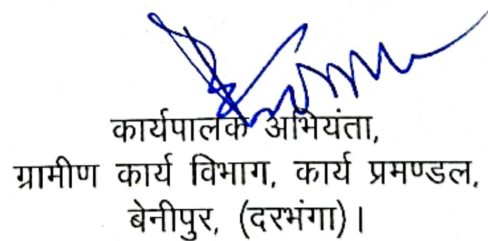 कार्यपालक अभियंता,
ग्रामीण कार्य विभाग, कार्य प्रमण्डल,
बेनीपुर, (दरभंगा)।